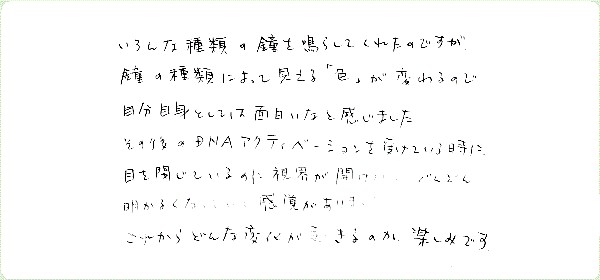 いろんな種類の鐘を鳴らしてくれたのですが、
鐘の種類によって見える「色」が変わるので
自分自身としては面白いなと感じました
その後のDNAアクティベーションを受けている時に、
目を閉じているのに視界が開けていくどんどん
明かるくなっていく感覚がありました
ここからどんな変化が起きるのか、楽しみです